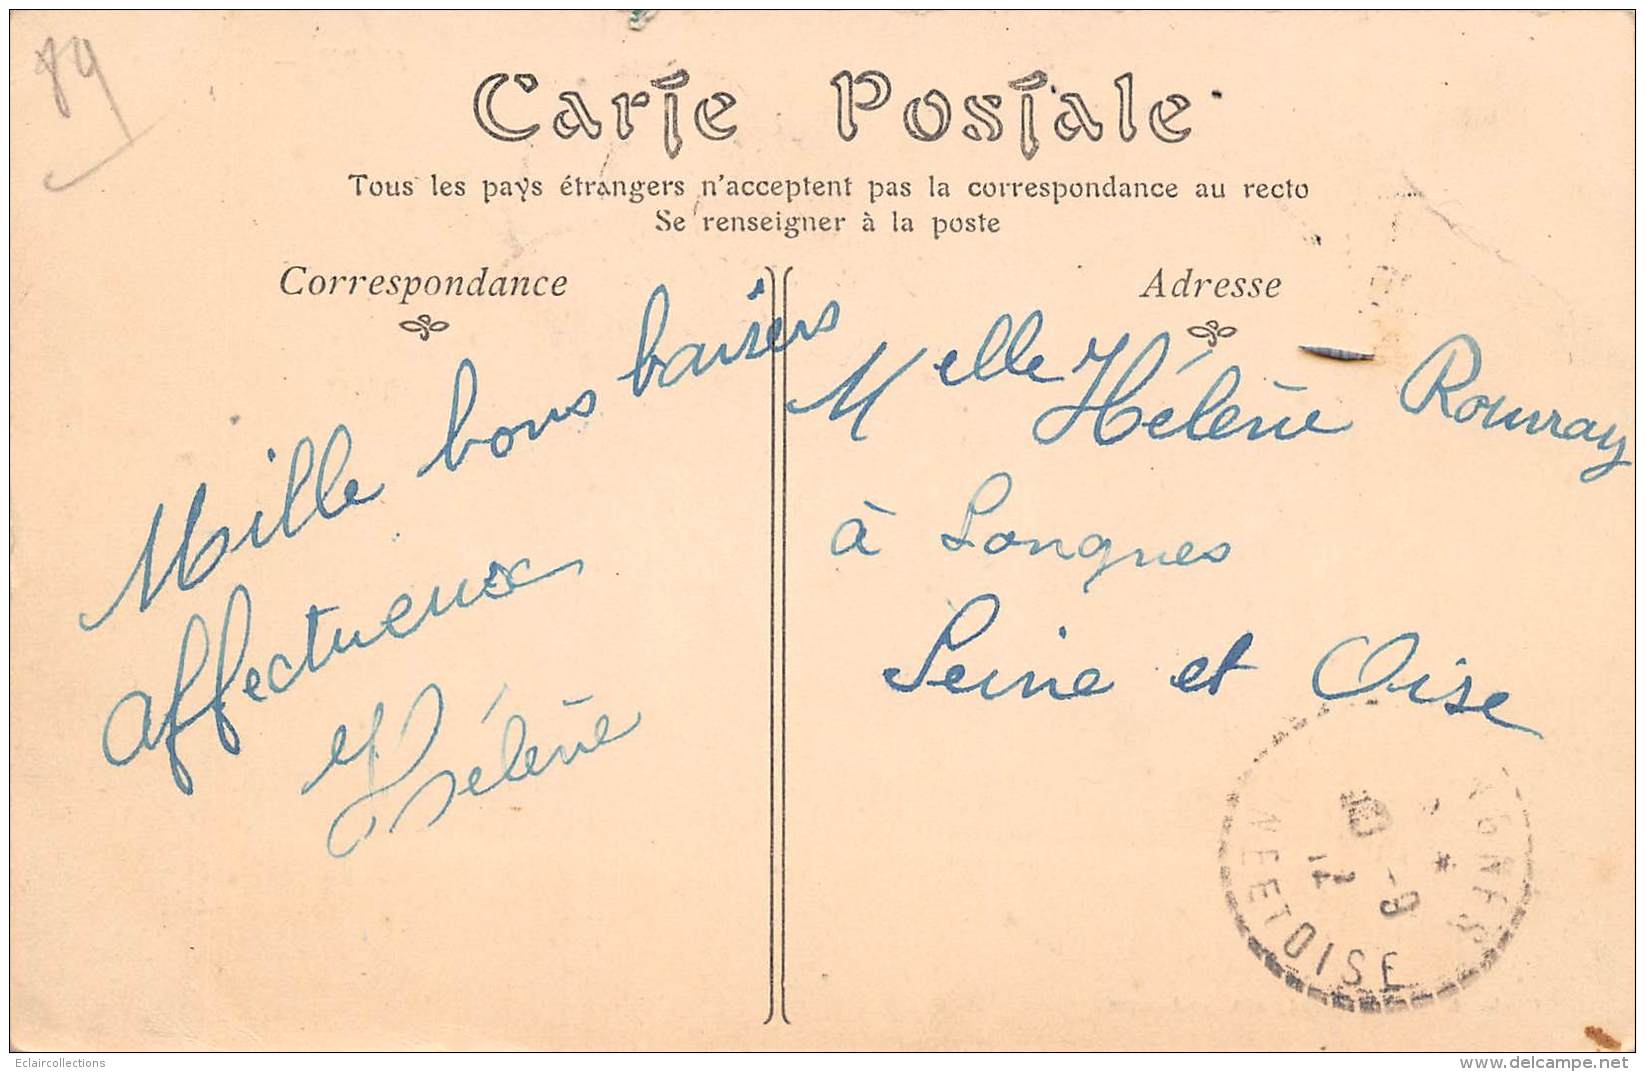 89
Carte Postale
Tous les pays étrangers n'acceptent pas la correspondance au recto
Se renseigner à la poste
Correspondance
Adresse
Mille bons baisers
affectueux
Hélène
Melle Hélène Rouvray
à Longnes
Seine et Oise
NETOISE
-9
12
Eclaircollections
https://www.delcampe.net